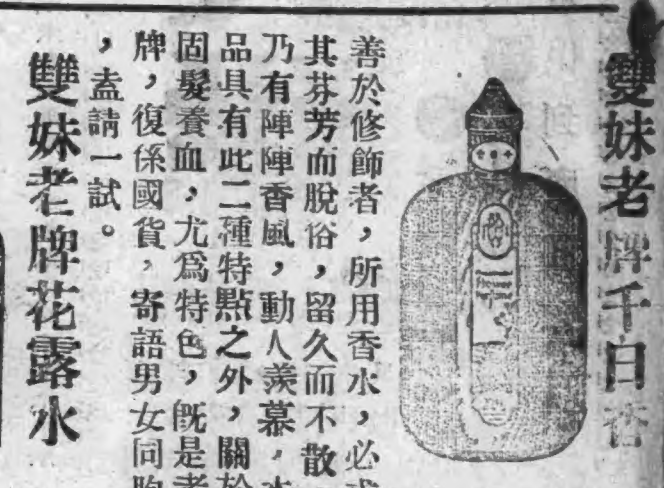 雙妹老牌千日香
善於修飾者，所用香水，必求
其芬芳而脫俗，留久而不散
乃有陣陣香風，動人羨慕，本
品具有此二種特點之外，關於
固髮養血，尤爲特色，既是老
牌，復係國貨，寄語男女同胞
，盍請一試。
雙妹老牌花露水